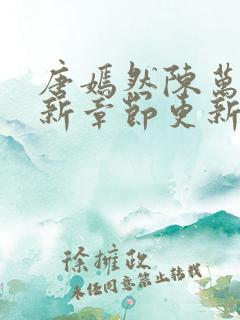 唐嫣然陳萬
新章節更新
徐擁政
未經同意禁止轉載